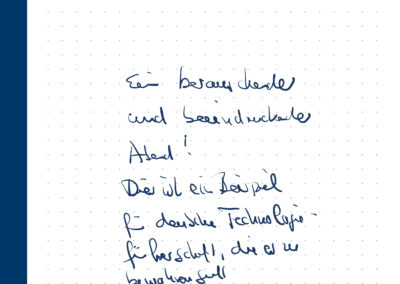 Ein berauschender
und beeindruckender
Abend!
Dies ist ein Beispiel
für deutsche Technologie-
führerschaft, die es zu
bewahren gilt